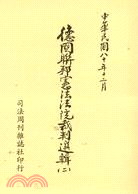 中華民國八十年十二月
德國聯邦憲法法院裁判選輯(二)
司法周刊雜誌社印行